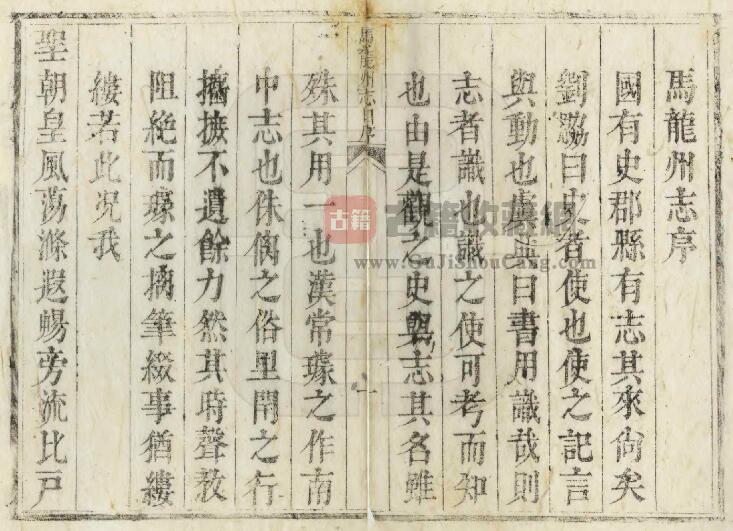 馬龍州志序
國有史郡縣有志其來尙矣
劉勰曰史者使也使之記言
與動也虞典曰書用識哉則
志者識也識之使可考而知
也由是觀之史與志其名雖
馬龍州志序
一
殊其用一也漢常璩之作南
中志也侏儷之俗里閈之行
攟摭不遺餘力然其時聲教
阻絶而璩之摛筆綴事猶縷
縷若此况我
聖朝皇風蕩滌遐暢旁流比戸
古籍
古籍收藏網
www.GuJiShouCang.com